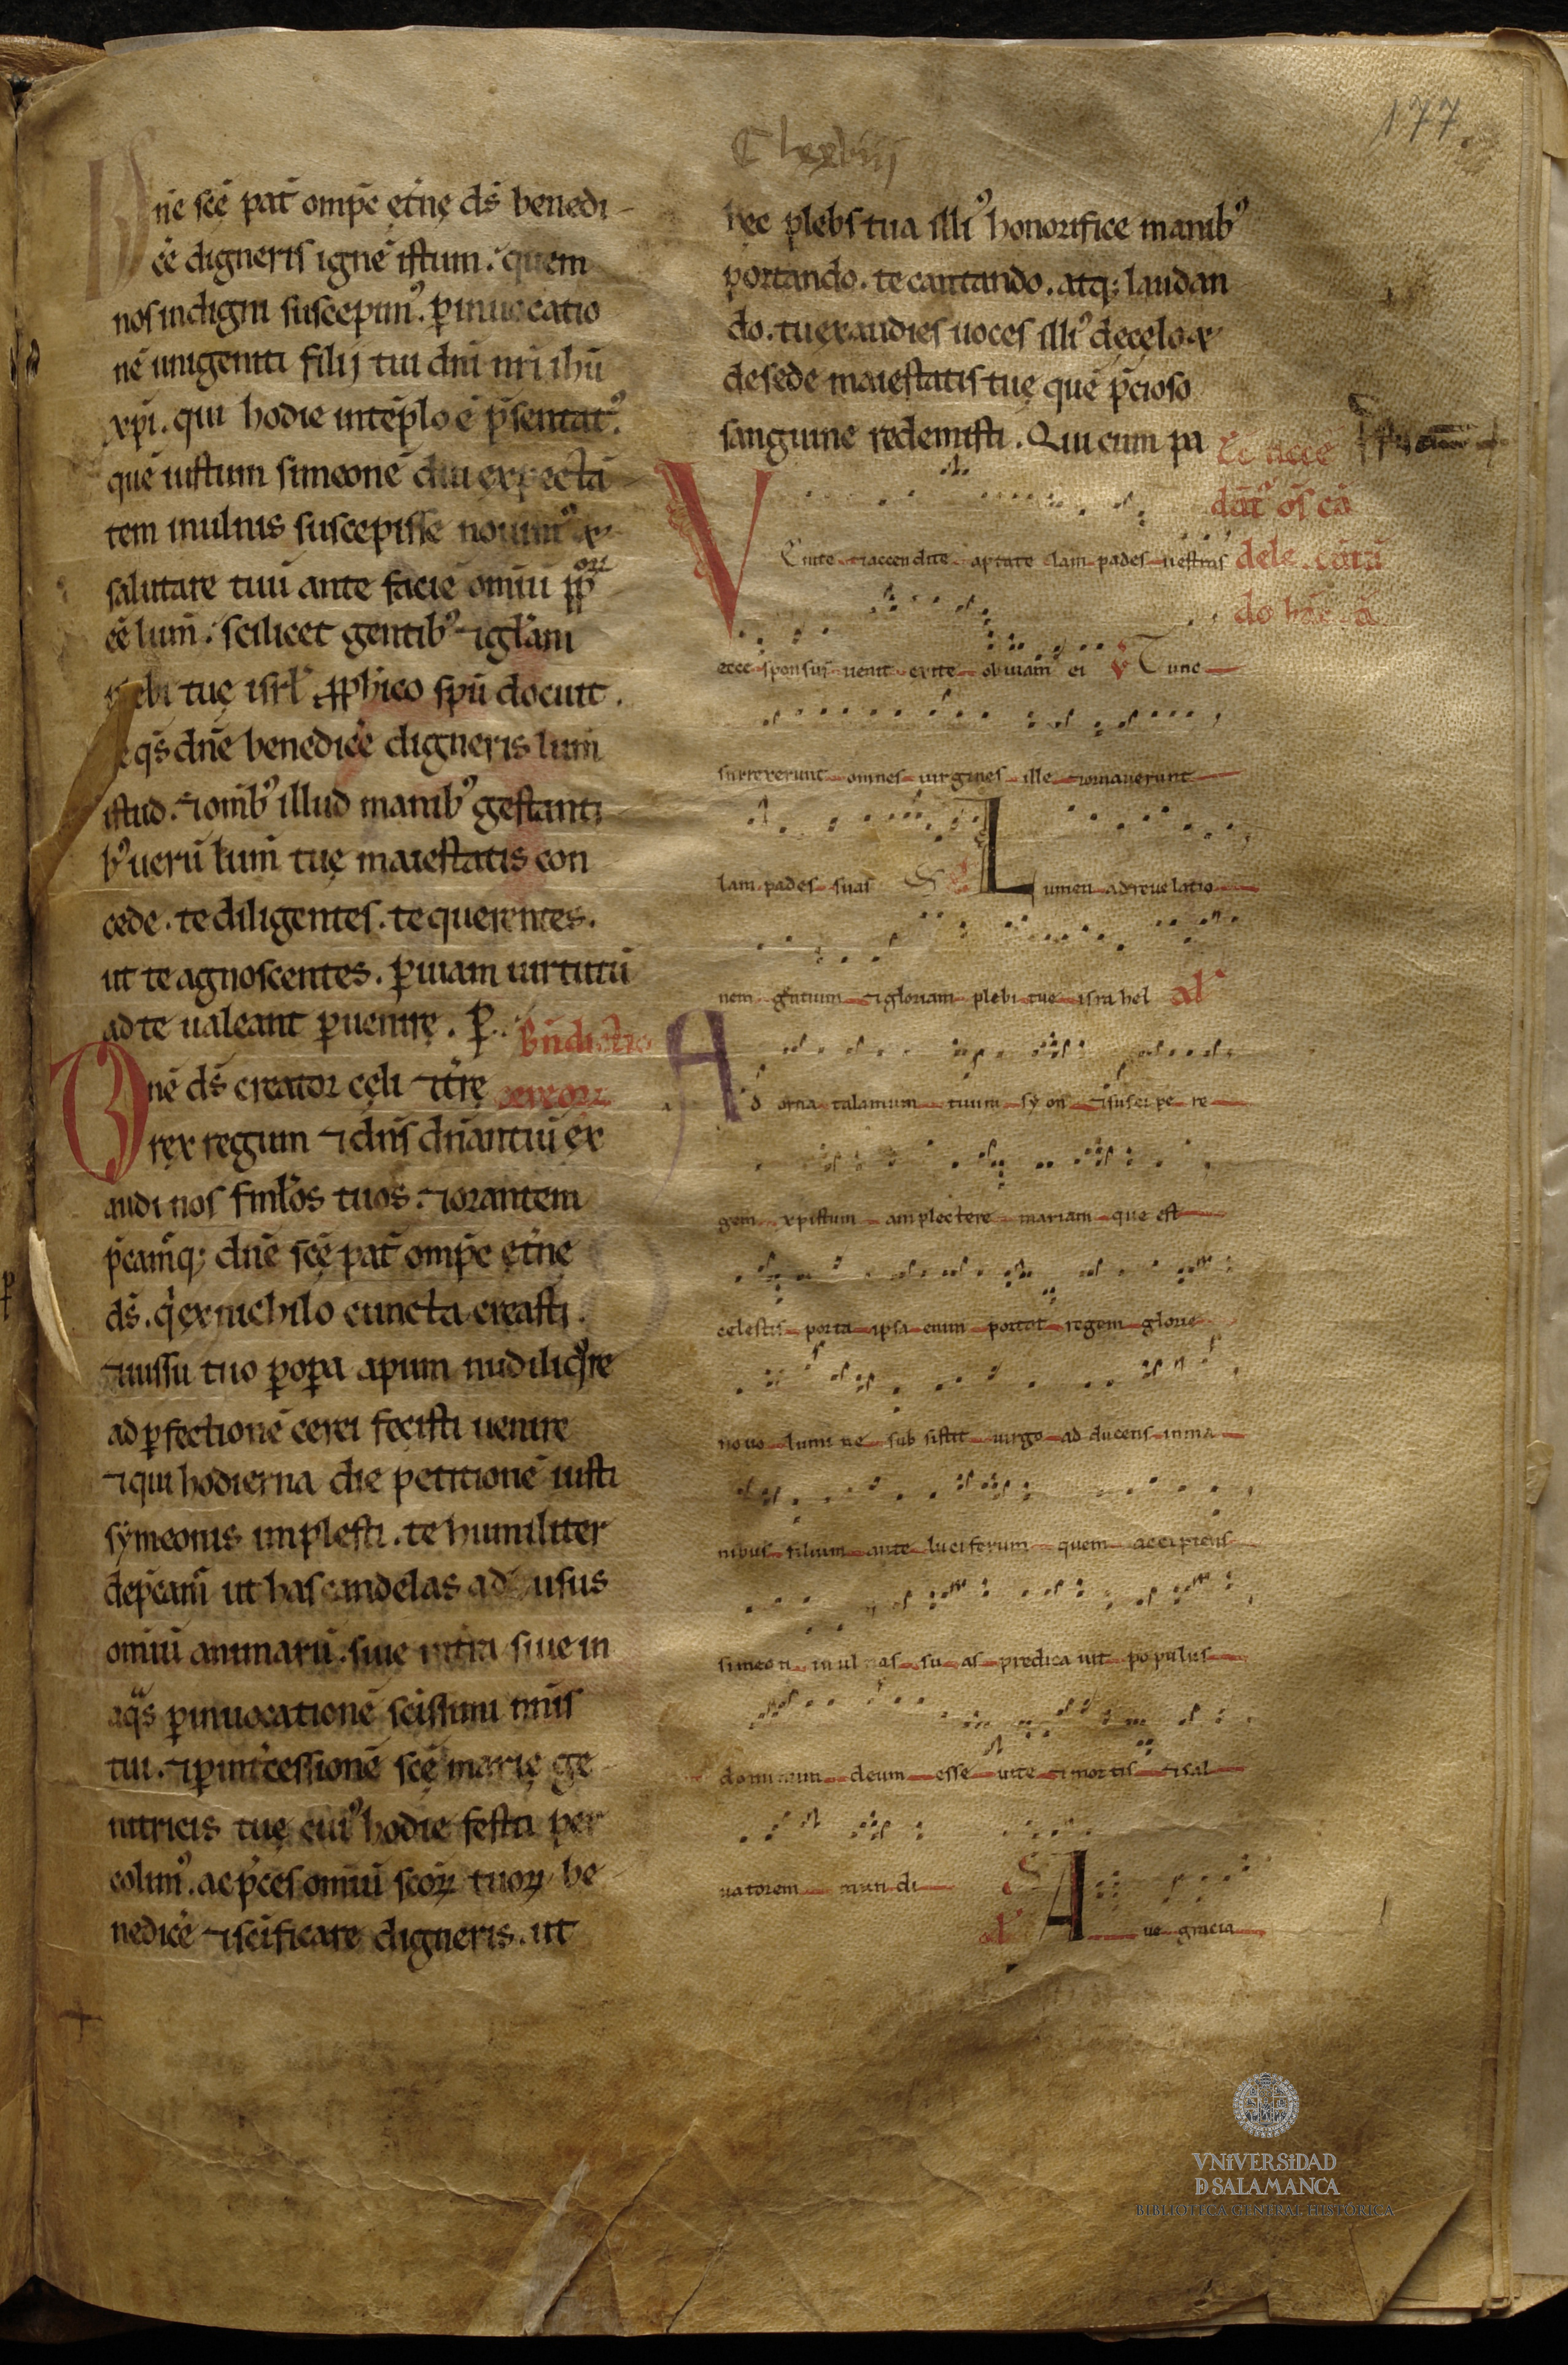 177
Dn̄e scē pat̄ omp̄e ęt̄nę ds̄ benedi-
cē digneris ignē istum. quem
nos indigni suscepim᷒. ꝑ inuocatio
nē unigeniti filij tui dn̄i nr̄i ihū
xp̄i. qui hodie in tēplo ē p̄sentat᷒.
quē iustum simeonē diu expectā
tem in ulnis suscepisse nouim᷒ ⁊
salutare tuū ante faciē omiū pp̄loꝝ
eē lum̄. scilicet gentib᷒ ⁊ gl̄am
plebi tuę isrl̄ ꝓphico spū docuit.
te qs̄ dn̄e benedicē digneris lum̄
istud. ⁊ omib᷒ illud manib᷒ gestanti
b᷒ uerū lum̄ tuę maiestatis con
cede. te diligentes. te querentes.
ut te agnoscentes. ꝑ uiam uirtutū
ad te ualeant ꝑuenire. P.
bn̄dictio
cereoꝝ
Omē ds̄ creator cęli ⁊ t̄rę
rex regum ⁊ dn̄s dn̄antiū ex
audi nos fml̄os tuos. ⁊ orantem
p̄camq; dn̄e scē pat̄ omp̄e ęt̄ne
ds̄. q̇ ex nichilo cuncta creasti.
⁊ iussu tuo ꝑ opa apum
ad ꝑfectionē cerei fecisti uenire
⁊ qui hodierna die petitionē iusti
sẏmeonis implesti. te humiliter
dep̄cam̄ ut has candelas ad usus
omiū animarū. siue siue in
aq̄s ꝑ inuocationē scissimi nōis
tui. ⁊ ꝑ int̄cessionē scę marię ge
nitricis tuę cui᷒ hodie festa per
colim᷒. ac p̄ces omiū scoꝝ tuoꝝ be
nedicē ⁊ scificare digneris. ut
hęc plebs tua illi᷒ honorifice manib᷒
portando. te cantando. atq; laudan
do. tu exaudies uoces illi᷒ de cęlo ⁊
de sede maiestatis tuę quē p̄cioso
sanguine redemisti. Qui cum pa
Venite ⁊ accendite aptate lampades uestras
ecce sponsus uenit exite obuiam ei V Tunc
surrexerunt omnes uirgines ille ⁊ ornauerunt
lampades suas Lumen ad reuelatio
nem gentium ⁊ gloriam plebi tue israhel al'
Ad orna talamum tuum syon ⁊ suscipe re
gem xpistum amplectere mariam que est
celestis porta ipsa enim portat regem glorie
nouo lumine subsistit uirgo adducens in ma
nibus filium ante luciferum quem accipiens
simeon in ulnas suas predicauit populis
dominum deum esse uite ⁊ mortis ⁊ sal
uatorem mundi
al' Aue gracia
VNiVERSiDAD
D SALAMANCA
BIBLIOTECA GENERAL HISTÓRICA